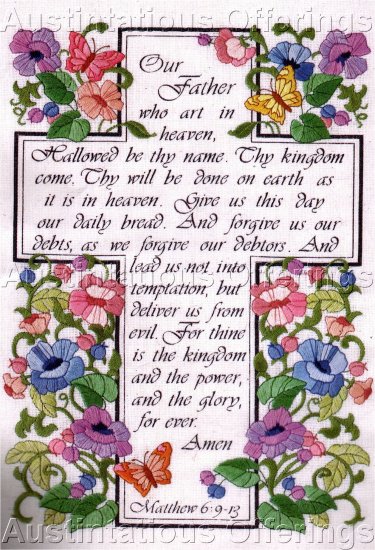 Austintatious Offerings
Our
Father
who art in
heaven,
Hallowed be thy name. Thy kingdom
come. Thy will be done on earth as
it is in heaven. Give us this day
our daily bread. And forgive us our
debts, as we forgive our debtors. And
lead us not into
temptation, but
deliver us from
evil. For thine
is the kingdom
and the power,
and the glory,
for ever.
Amen
Matthew 6:9-13
Austintatious Offerings